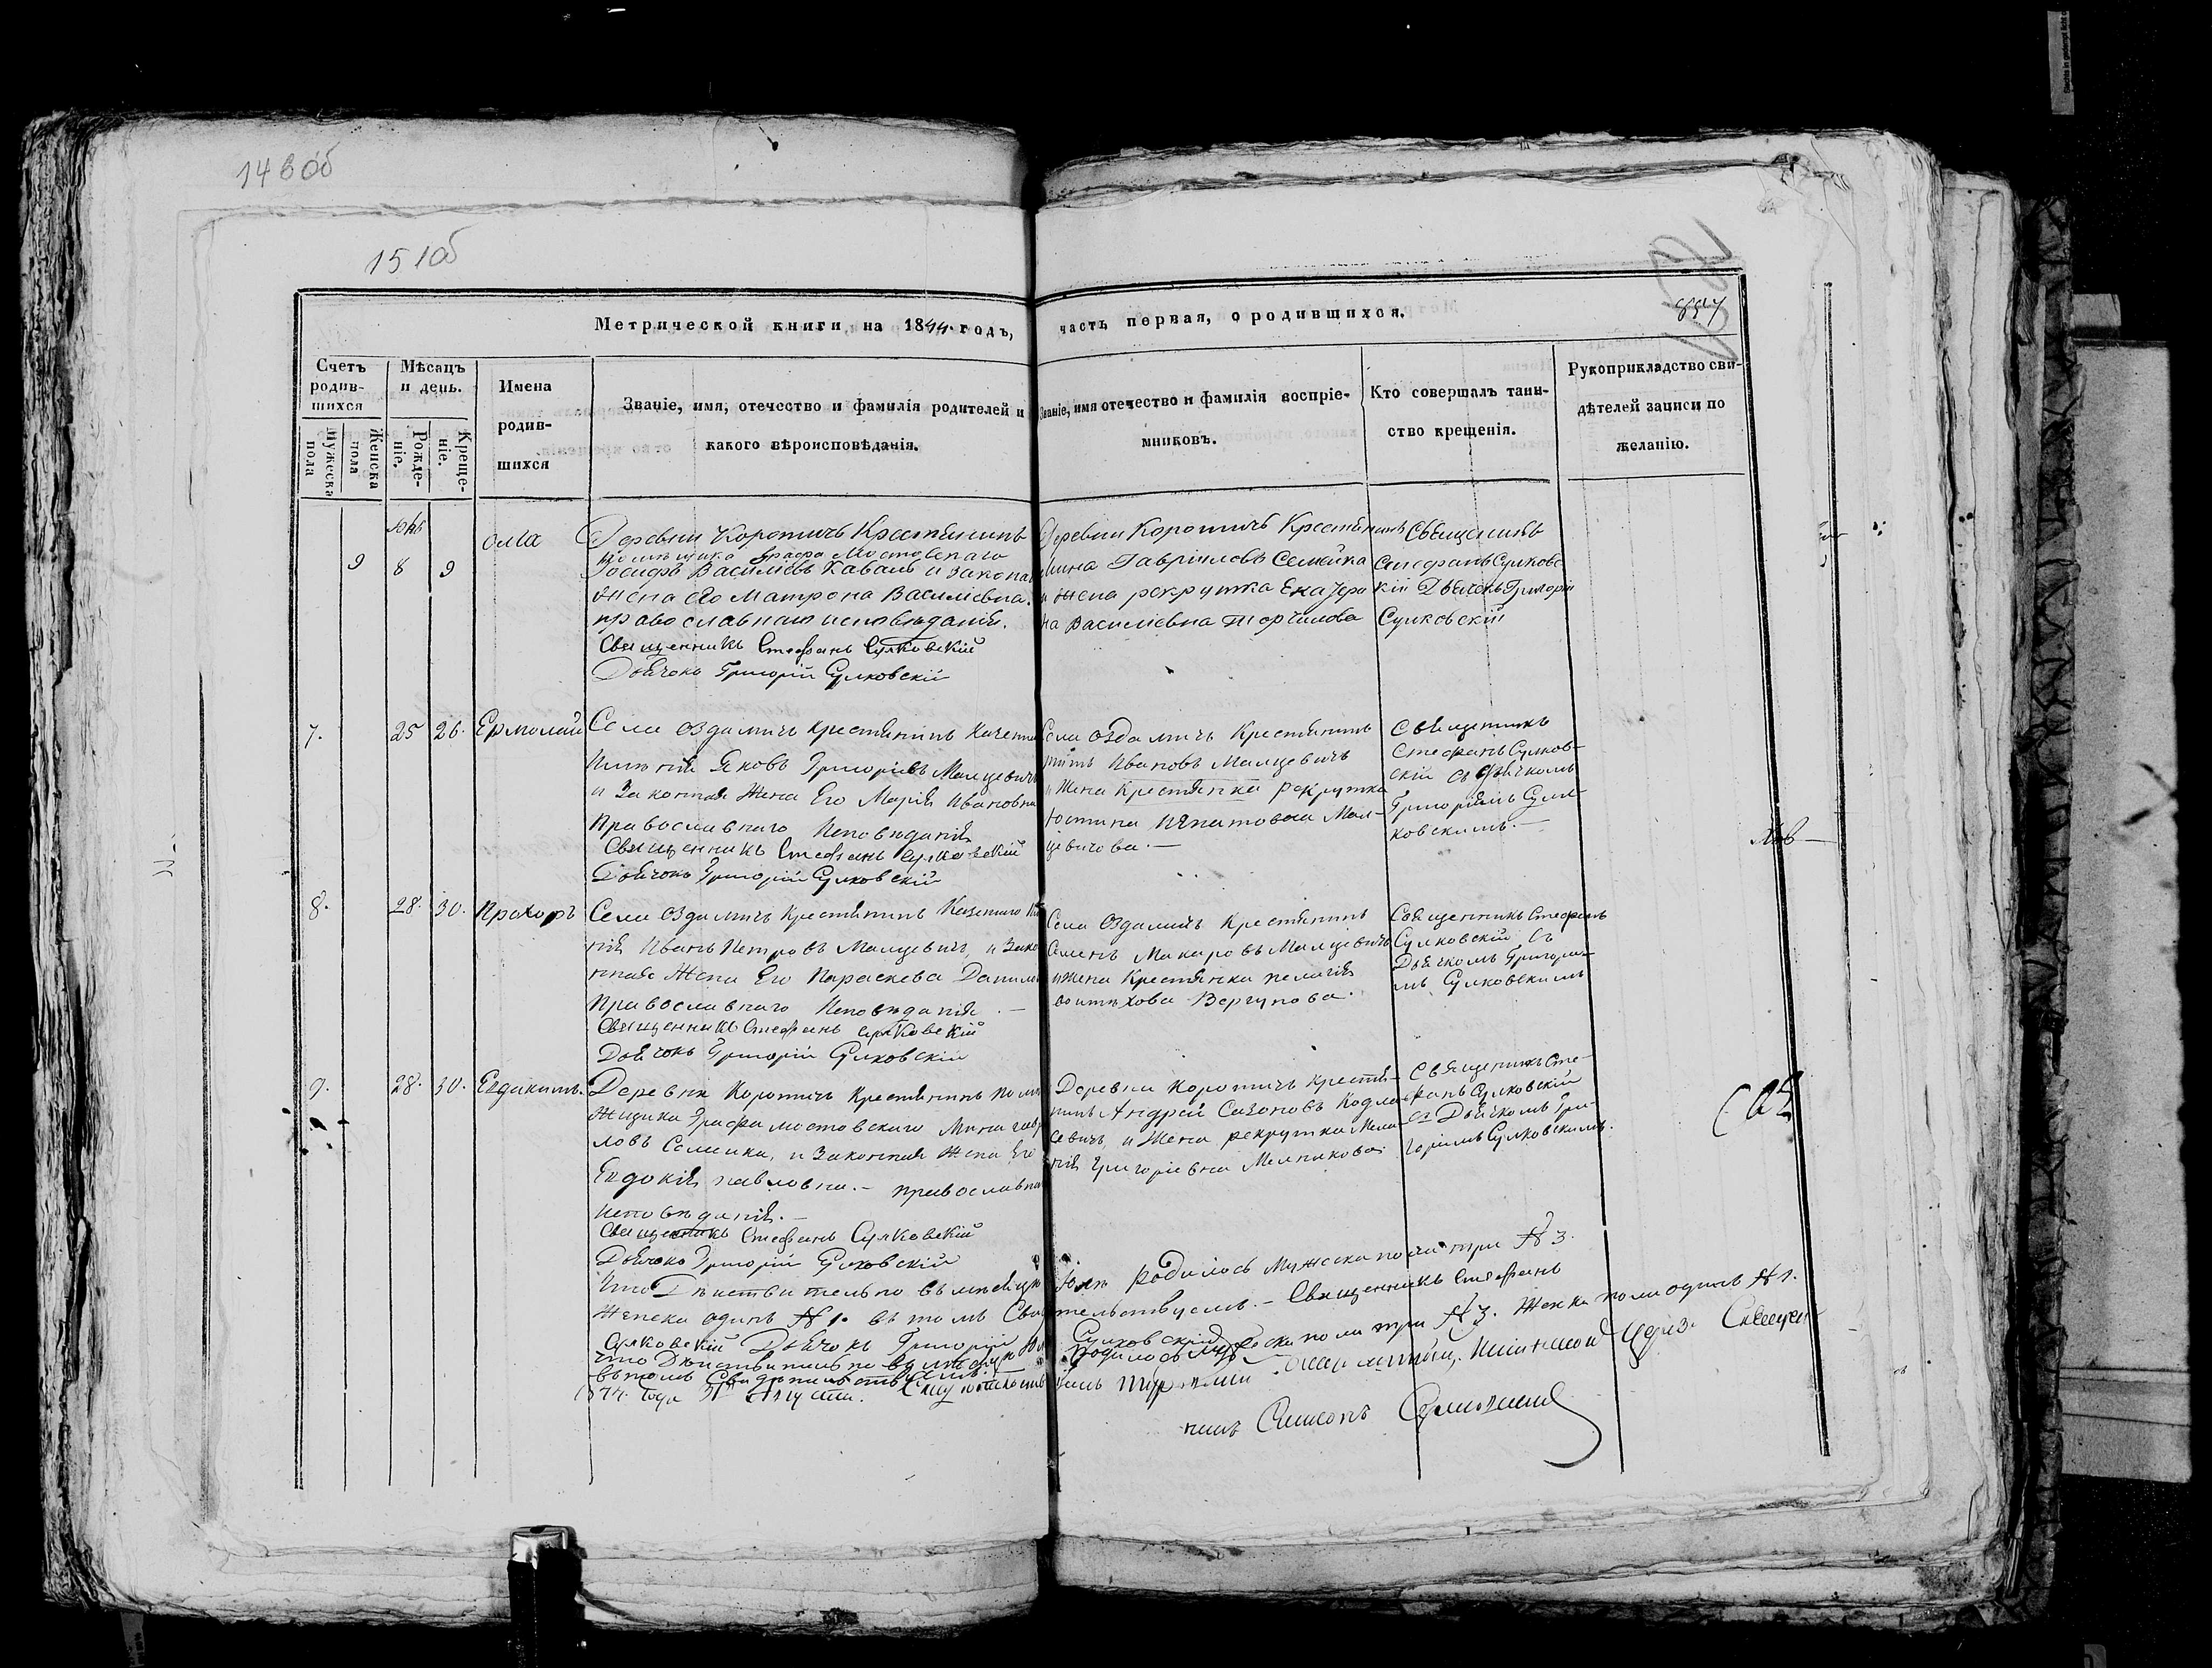 143об
151об
Метрической книги, на 1844 годъ,
часть первая, о родившихся.
857
Счетъ родив-
шихся
Мужеска пола
Женска пола
Мѣсяцъ и день.
Рожде-
ніе.
Креще-
ніе.
Имена
родив-
шихся
Званіе, имя, отечество и фамилія родителей и
какого вѣроисповѣданія.
Званіе, имя отечество и фамилія воспріе-
мниковъ.
Кто совершалъ таин-
ство крещенія.
Рукоприкладство сви-
дѣтелей записи по
желанію.
9
8
9
Деревни Коротичь Крестянинъ
помѣщика Графа Мостовскаго
Іосифъ Василіевъ Кавалъ и закона
жена его Матрона Василіевна.
православнаго исповѣданія.
Священникъ Стефанъ Сулковскій
Дьячокъ Григорій Сулковскій
Деревни Коротичь Крестянинъ
Мина Гавріиловъ Семейка
и жена рекрутка Екатери
на Василіевна
Священникъ
Стефанъ Сулковс
кій Дьячокъ Григорій
Сулковскій
7.
25
26.
Ермолай
Села Оздамичь крестянинъ Казенна
Имѣнія Яковъ Григоріевъ Малцевичъ
и Законная Жена Его Марія Ивановна
Православнаго Исповѣданія
Священникъ Стефанъ Сулковскій
Дьячокъ Григорій Сулковскій
Села Оздамичь Крестянинъ
Ивановъ Малцевичъ
и Жена Крестянка рекрутка
Юстина Игнатовна Мал-
цевичова.—
Священникъ
Стефанъ Сулков-
скій съ дьячкомъ
Григоріемъ Сул-
ковскимъ.—
8.
28.
30.
Прохоръ
Села Оздамичь Крестянинъ Казеннаго Имѣ
нія Иванъ Петровъ Малцевичъ, и Зако
нная Жена Его Параскева Данилов
Православнаго Исповѣданія.—
Священникъ Стефанъ Сулковскій
Дьячокъ Григорій Сулковскій
Села Оздамичь Крестянинъ
Семенъ Макаровъ Малцевичъ
и Жена Крестянка пелагія
Вергунова.
Священникъ Стефанъ
Сулковскій съ
Дьячкомъ Григорі-
мъ Сулковскимъ
9.
28.
30.
Евдакимъ.
Деревни Коротичь Крестянинъ помѣ
жщика Графа мостовскаго Мина гавр
ловъ Семейка, и Законная Жена Его
Евдокія павловна.— православна
исповѣданія.—
Священникъ Стефанъ Сулковскій
Дьячокъ Григорій Сулковскій
Деревни Коротичь крестя-
нинъ Андрей Сазоновъ Кодла-
севичъ и Жена рекрутка Мела-
нія Григоріевна Мелникова
Священникъ Сте-
фанъ Сулковскій
съ Дьячкомъ Гри-
горіемъ Сулковскимъ.
Что Дѣиствително въ мѣсяцѣ
Юнѣ родилось Мужеска пола три № 3.
Женска одинъ № 1. въ томъ Сви
телствуемъ.— Священникъ Стефанъ
Сулковскій Дьячокъ Григорій
Сулковскій
что Дѣиствително въ мѣсяцѣ
родилось Мужеска пола три № 3. Женска пола одинъ № 1.
въ томъ Свидѣтелствуемъ.
Священ
никъ Симеонъ